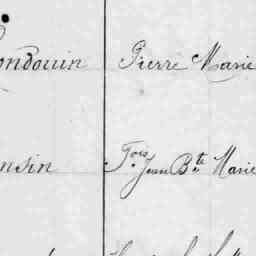 ondouin Pierre Marie
nsin Fois Jean Bte Marie